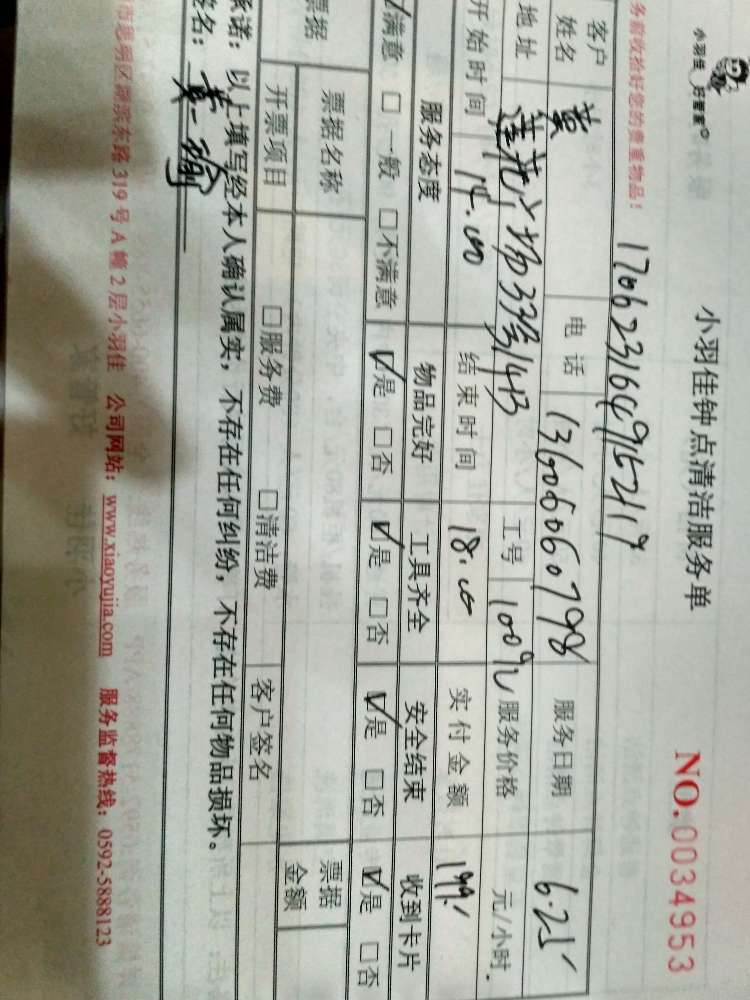 小羽佳 好管家
小羽佳钟点清洁服务单
NO.0034953
务前收拾好您的贵重物品！
客户姓名 黄 电话 13606060798 服务日期 6.25
地址 莲花广场37号1413 工号 服务价格 元/小时.
开始时间 14.00 结束时间 18.00 实付金额
服务态度 物品完好 工具齐全 安全结束 收到卡片
☑满意 □一般 □不满意 ☑是 □否 ☑是 □否 ☑是 □否 ☑是 □否
票据 票据名称 票据金额
开票项目 □服务费 □清洁费 客户签名
承诺：以上填写经本人确认属实，不存在任何纠纷，不存在任何物品损坏。
签名：黄
市思明区湖滨东路319号A幢2层小羽佳 公司网站：www.xiaoyujia.com 服务监督热线：0592-5888123